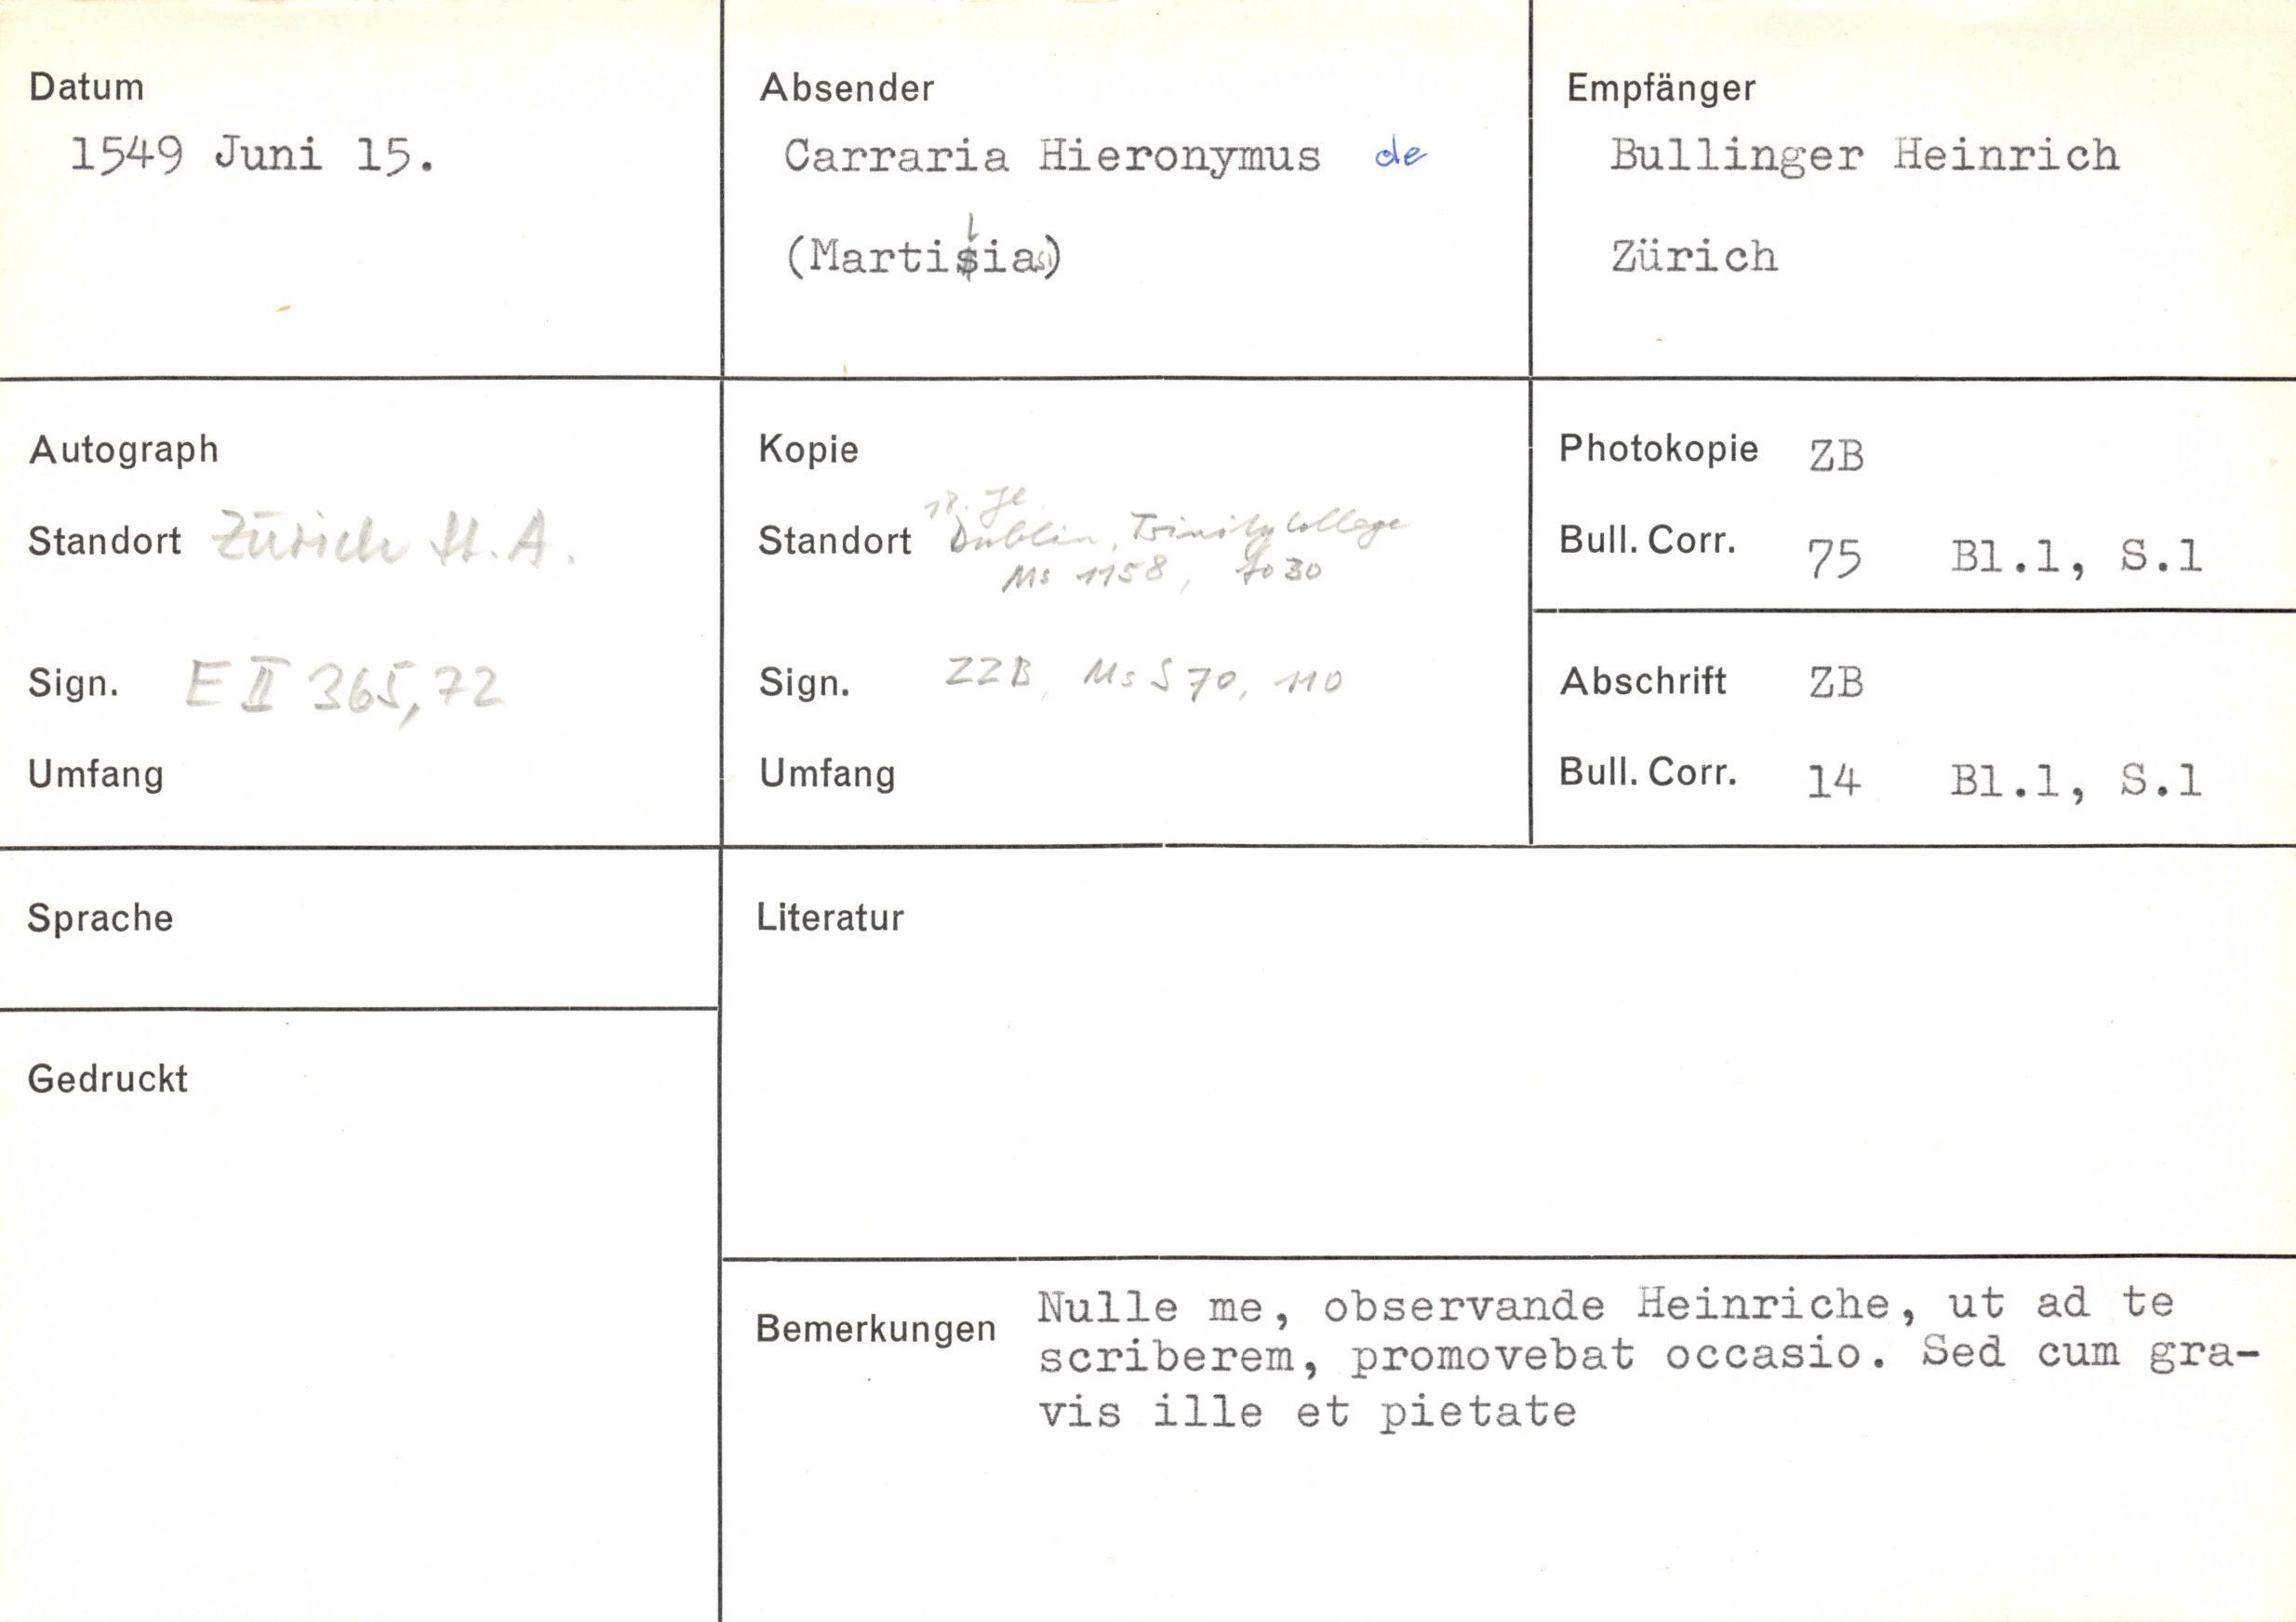 Datum
1549 Juni 15.
Absender
Carraria Hieronymus de
(Martisia)
Empfänger
Bullinger Heinrich
Zürich
Autograph
Standort Zürich St. A.
Sign. E II 365,72
Umfang
Kopie
18. Jh
Standort Dublin, Trinity College
Ms 1158, fo 30
Sign. ZZB, Ms S 70, 110
Umfang
Photokopie ZB
Bull. Corr. 75 Bl.1, S.1
Abschrift ZB
Bull. Corr. 14 Bl.1, S.1
Sprache
Gedruckt
Literatur
Bemerkungen
Nulle me, observande Heinriche, ut ad te
scriberem, promovebat occasio. Sed cum gra-
vis ille et pietate